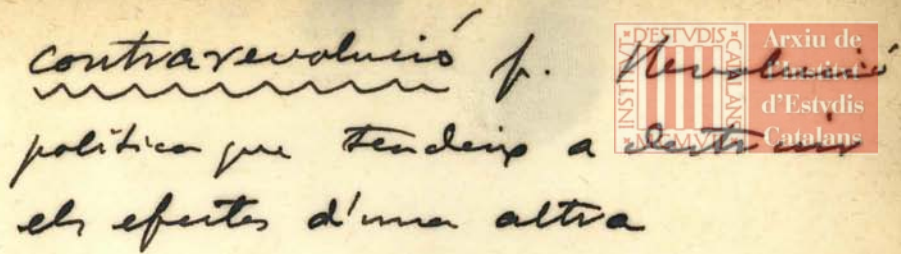 contrarevolució f. Revolució
política que tendeix a destruir
els efectes d'una altra
INSTITVT D'ESTVDIS CATALANS
MCMVII
Arxiu de
l'Institut
d'Estvdis
Catalans